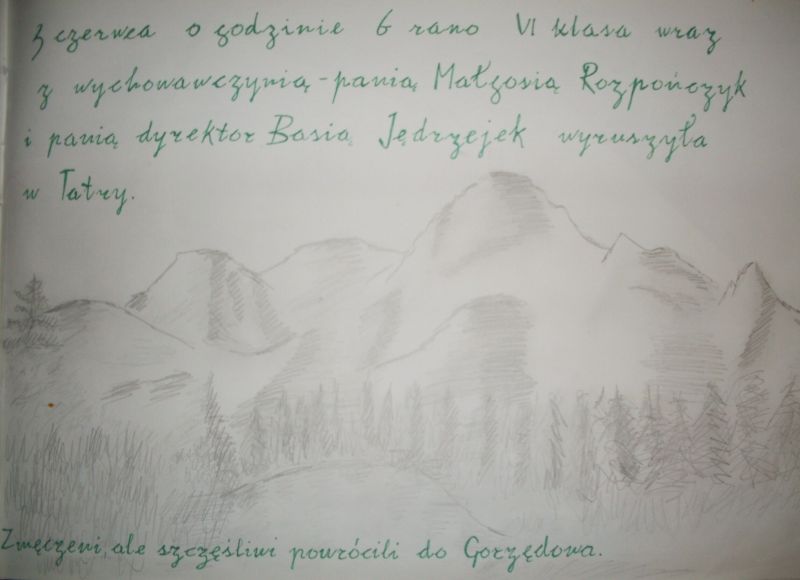 3 czerwca o godzinie 6 rano VI klasa wraz
z wychowawczynią - panią Małgosią Rozpończyk
i panią dyrektor Basią Jędrzejek wyruszyła
w Tatry.
Zmęczeni, ale szczęśliwi powrócili do Gorzędowa.